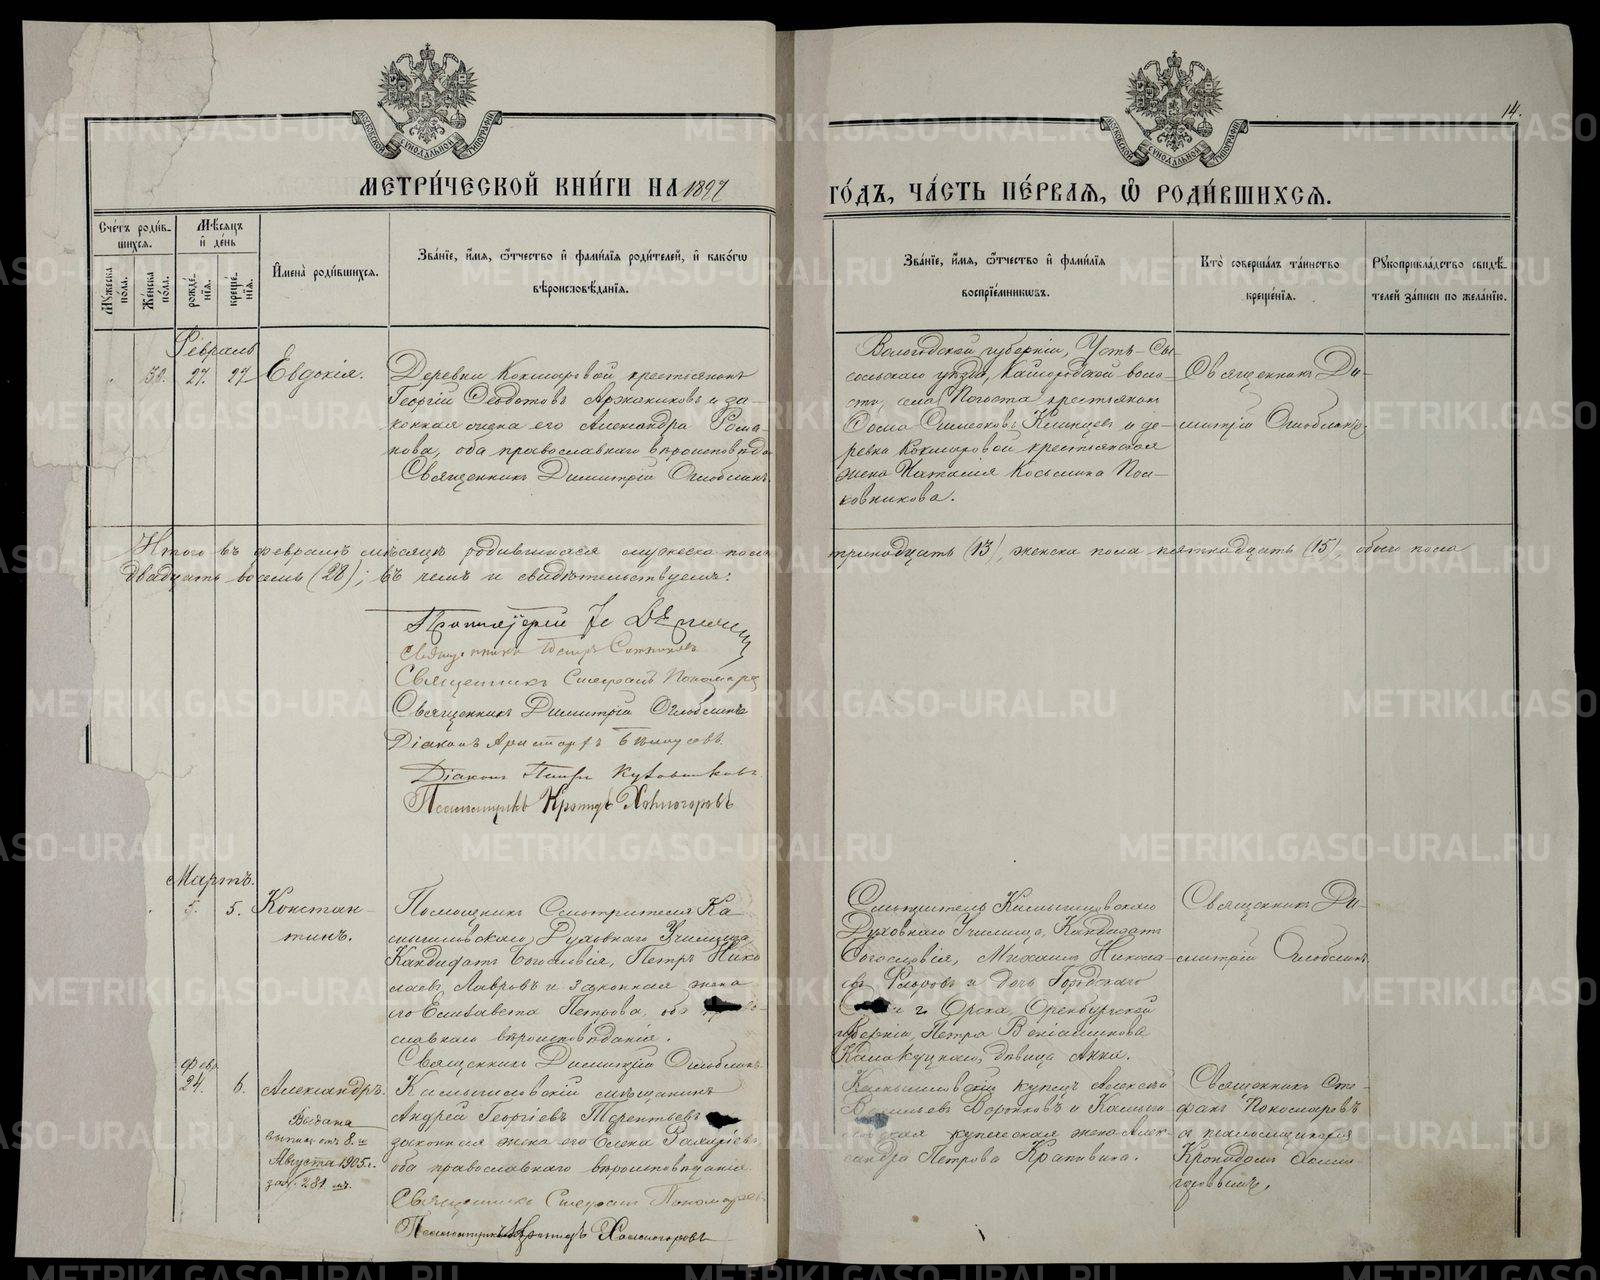 14.
МОСКОВСКОЙ СѴНОДАЛЬНОЙ ТИПОГРАФІИ
МОСКОВСКОЙ СѴНОДАЛЬНОЙ ТИПОГРАФІИ
МЕТРИ́ЧЕСКОЙ КНИ́ГИ НА 1897
ГО́ДЪ, ЧА́СТЬ ПЕ́РВАЯ, Ѿ РОДИ́ВШИХСЯ.
Сче́тъ роди́в-
шихся.
Мужеска пола.
Женска пола.
Мѣсяцъ
и де́нь
рожде́-
нія.
креще́-
нія.
Имена̀ роди́вшихся.
Зва́ніе, и́мя, ѻ́тчество и фами́лія роди́телей, и како́гѡ
вѣроисповѣданія.
Зва́ніе, и́мя, ѻ́тчество и фами́лія
воспріе́мниковъ.
Кто̀ соверша́лъ та́инство
креще́нія.
Рукоприкла́дство свидѣ́-
телей за́писи по жела́нію.
Февраль
27. 27 Евдокія.
Деревни Кокшаровой крестьянинъ
Георгій Ѳеодотовъ Аржанниковъ и за-
конная жена его Александра Рома-
нова, оба православнаго вѣроисповѣд.
Священникъ Димитрій Оглоблинъ.
Вологодской губерніи, Усть-Сы-
сольскаго уѣзда, Кайгородской воло-
сти, села Погоста крестьянинъ
Ѳома Симеоновъ и де-
ревни Кокшаровой крестьянская
жена Наталія Косьмина Пол-
ковникова.
Священникъ Ди-
митрій Оглоблинъ
Итого въ февралѣ мѣсяцѣ родившихся мужеска пола
тринадцать (13), женска пола пятнадцать (15), обоего пола
двадцать восемь (28); въ чемъ и свидѣтельствуемъ:
Протоіерей
Священникъ Петръ
Священникъ Стефанъ Пономаре
Священникъ Димитрій Оглоблинъ
Діаконъ Аристархъ
Діаконъ
Псаломщикъ Кронидъ Холмогоровъ
Мартъ.
5. 5. Констан-
тинъ.
Помощникъ Смотрителя Ка-
мышловскаго Духовнаго Училища,
Кандидатъ Богословія, Петръ Нико-
лаевъ Лавровъ и законная жена
его Елизавета Петрова, оба
славнаго вѣроисповѣданія.
Священникъ Димитрій Оглоблинъ.
Смотритель Камышловскаго
Духовнаго Училища, Кандидатъ
Богословія, Михаилъ Никола-
евъ Флоровъ и дочь Городскаго
г. Орска, Оренбургской
губерніи, Петра Веніаминова
дѣвица Анна.
Священникъ Ди-
митрій Оглоблинъ.
Февр.
24. 6. Александръ.
Выдана
выпись отъ 8.го
Августа 1905 г.
за № 281.
Камышловскій мѣщанинъ
Андрей Георгіевъ Терентьевъ
законная жена его Елена
оба православнаго вѣроисповѣданія.
Священникъ Стефанъ Пономарев
Псаломщикъ Кронидъ Холмогоровъ
Камышловскій купецъ Алексѣй
Васильевъ и Камыш-
ловская купеческая жена Алек-
сандра Петрова
Священникъ Сте-
фанъ Пономаревъ
съ псаломщикомъ
Кронидомъ Холмо-
горовымъ.
METRIKI.GASO-URAL.RU